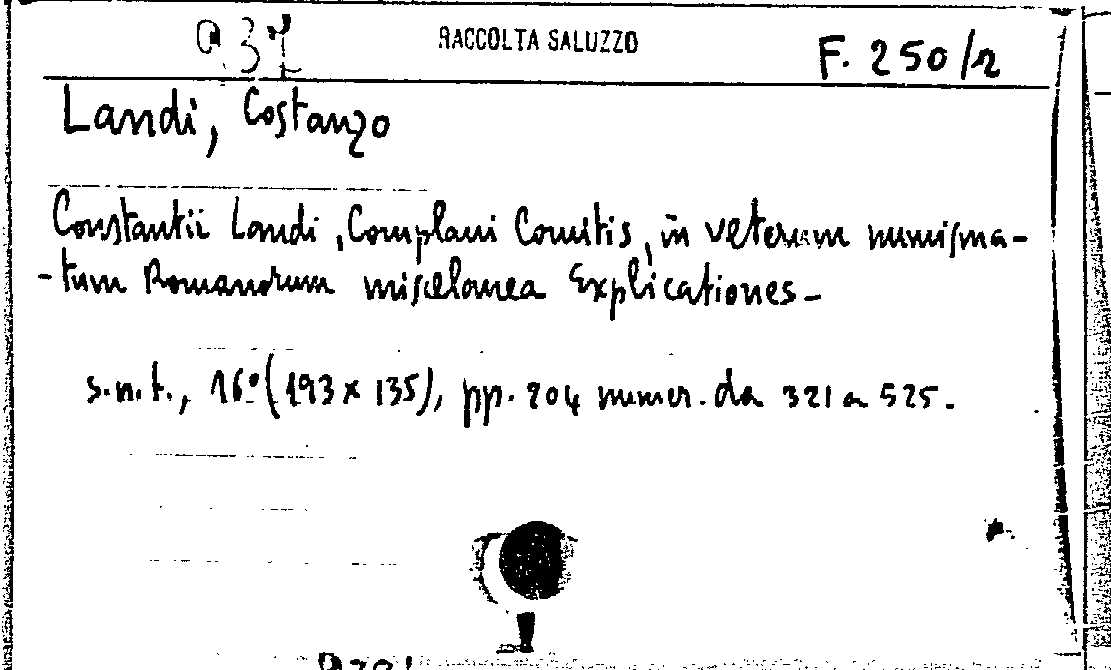 937 RACCOLTA SALUZZO F. 250/2
Landi, Costanzo
Constantii Landi, Complani Comitis, in veterum numisma-
-tum Romanorum miscelanea Explicationes-
s.n.t., 16º (193 x 135), pp. 204 numer. da 321 a 525.